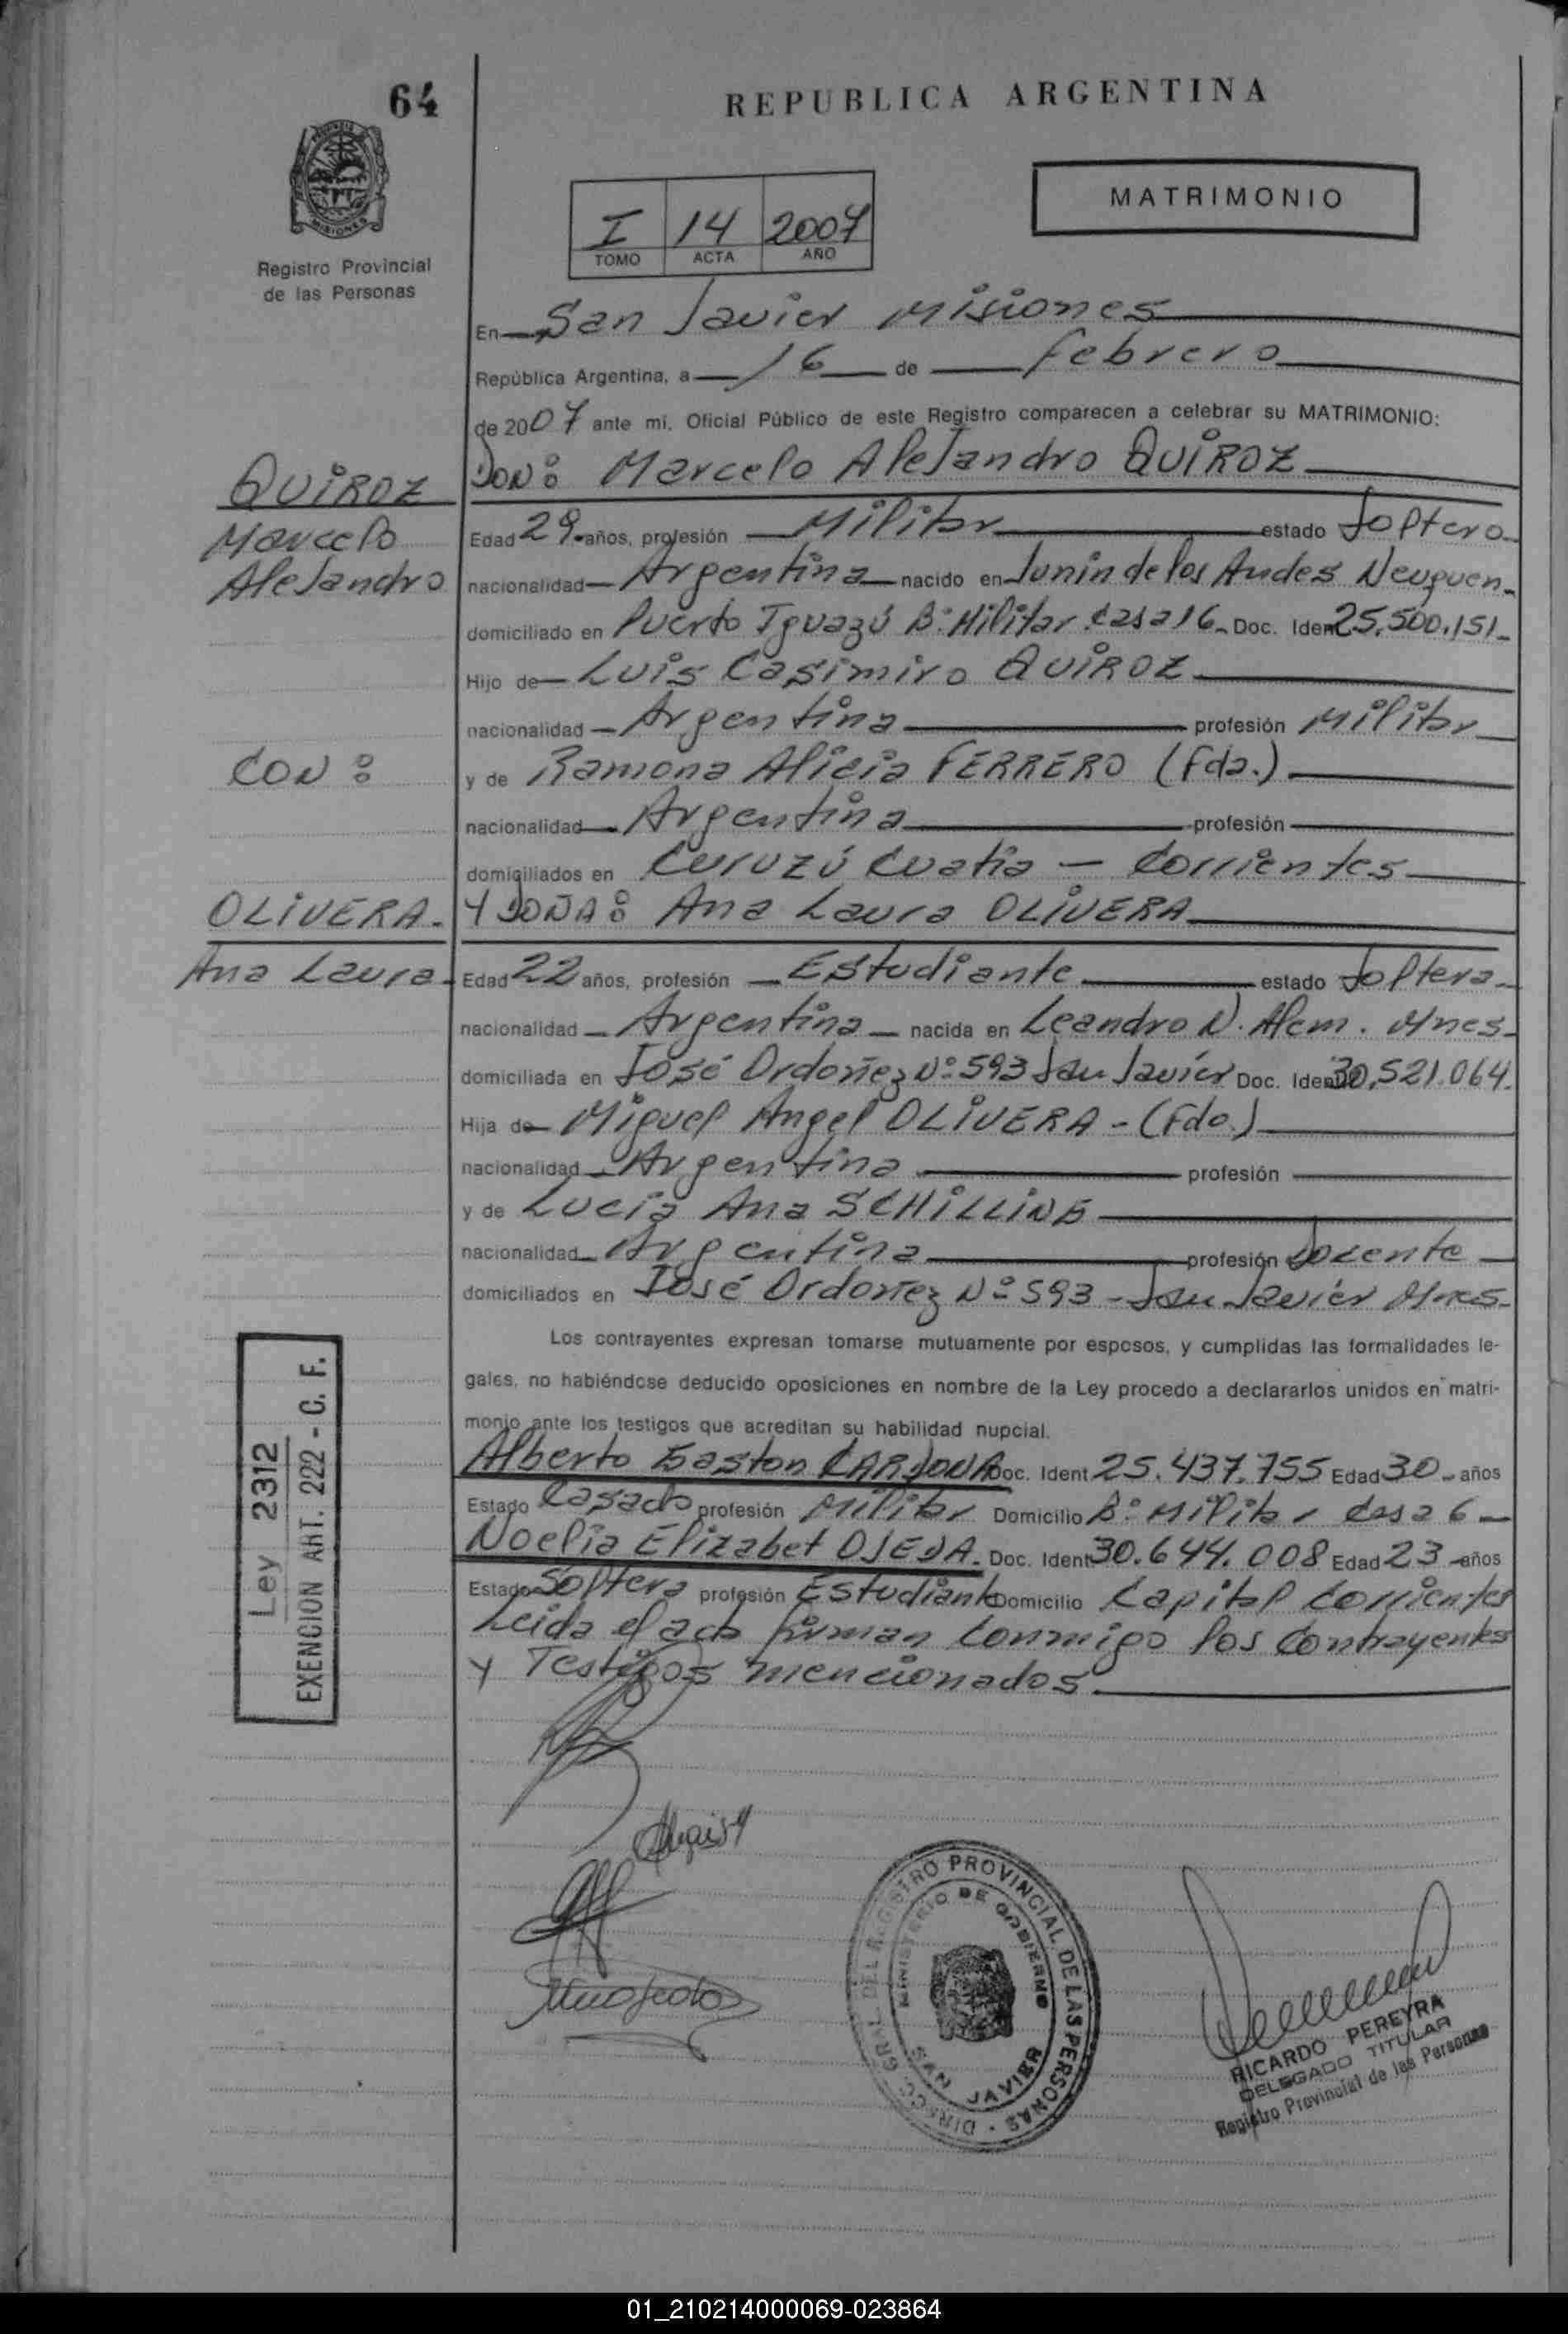 64
REPUBLICA ARGENTINA
MATRIMONIO
I 14 2007
TOMO ACTA AÑO
Registro Provincial
de las Personas
En San Javier Misiones
República Argentina, a 16 de Febrero
de 2007 ante mi, Oficial Público de este Registro comparecen a celebrar su MATRIMONIO:
QUIROZ
DON: Marcelo Alejandro QUIROZ
Marcelo
Edad 29 años, profesión Militar estado Soltero
Alejandro
nacionalidad Argentina nacido en Junin de los Andes Neuquen
domiciliado en Puerto Iguazú B° Militar Casa 16 Doc. Ident 25.500.151
Hijo de Luis Casimiro QUIROZ
nacionalidad Argentina profesión Militar
CON:
y de Ramona Alicia FERRERO (Fda.)
nacionalidad Argentina profesión
domiciliados en Curuzú Cuatia - Corrientes
OLIVERA
Y DOÑA: Ana Laura OLIVERA
Ana Laura
Edad 22 años, profesión Estudiante estado Soltera
nacionalidad Argentina nacida en Leandro N. Alem. Mnes
domiciliada en José Ordoñez N° 593 San Javier Doc. Ident 30.521.064
Hija de Miguel Angel OLIVERA - (Fdo.)
nacionalidad Argentina profesión
y de Lucia Ana SCHILLING
nacionalidad Argentina profesión Docente
domiciliados en José Ordoñez N° 593 - San Javier Mnes
Los contrayentes expresan tomarse mutuamente por esposos, y cumplidas las formalidades le-
gales, no habiéndose deducido oposiciones en nombre de la Ley procedo a declararlos unidos en matri-
monio ante los testigos que acreditan su habilidad nupcial.
Alberto Gaston CARDONA Doc. Ident 25.437.755 Edad 30 años
Estado Casado profesión Militar Domicilio B° Militar Casa 6
Noelia Elizabet OJEDA. Doc. Ident 30.644.008 Edad 23 años
Estado Soltera profesión Estudiante Domicilio Capital Corrientes
Leida el acta firman conmigo los Contrayentes
y Testigos mencionados
Ley 2312
EXENCION ART. 222 - C. F.
DIRECC. GRAL. DEL REGISTRO PROVINCIAL DE LAS PERSONAS
MINISTERIO DE GOBIERNO
SAN JAVIER
RICARDO PEREYRA
DELEGADO TITULAR
Registro Provincial de las Personas
01_210214000069-023864